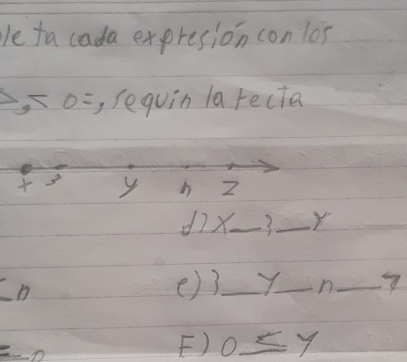 le ta cada expresión con los
>, < o =, sequin la recta
x 3 y n z
d) X __ 3 __ Y
n
e) 3 __ Y __ n __ z
F) 0 ≤ Y